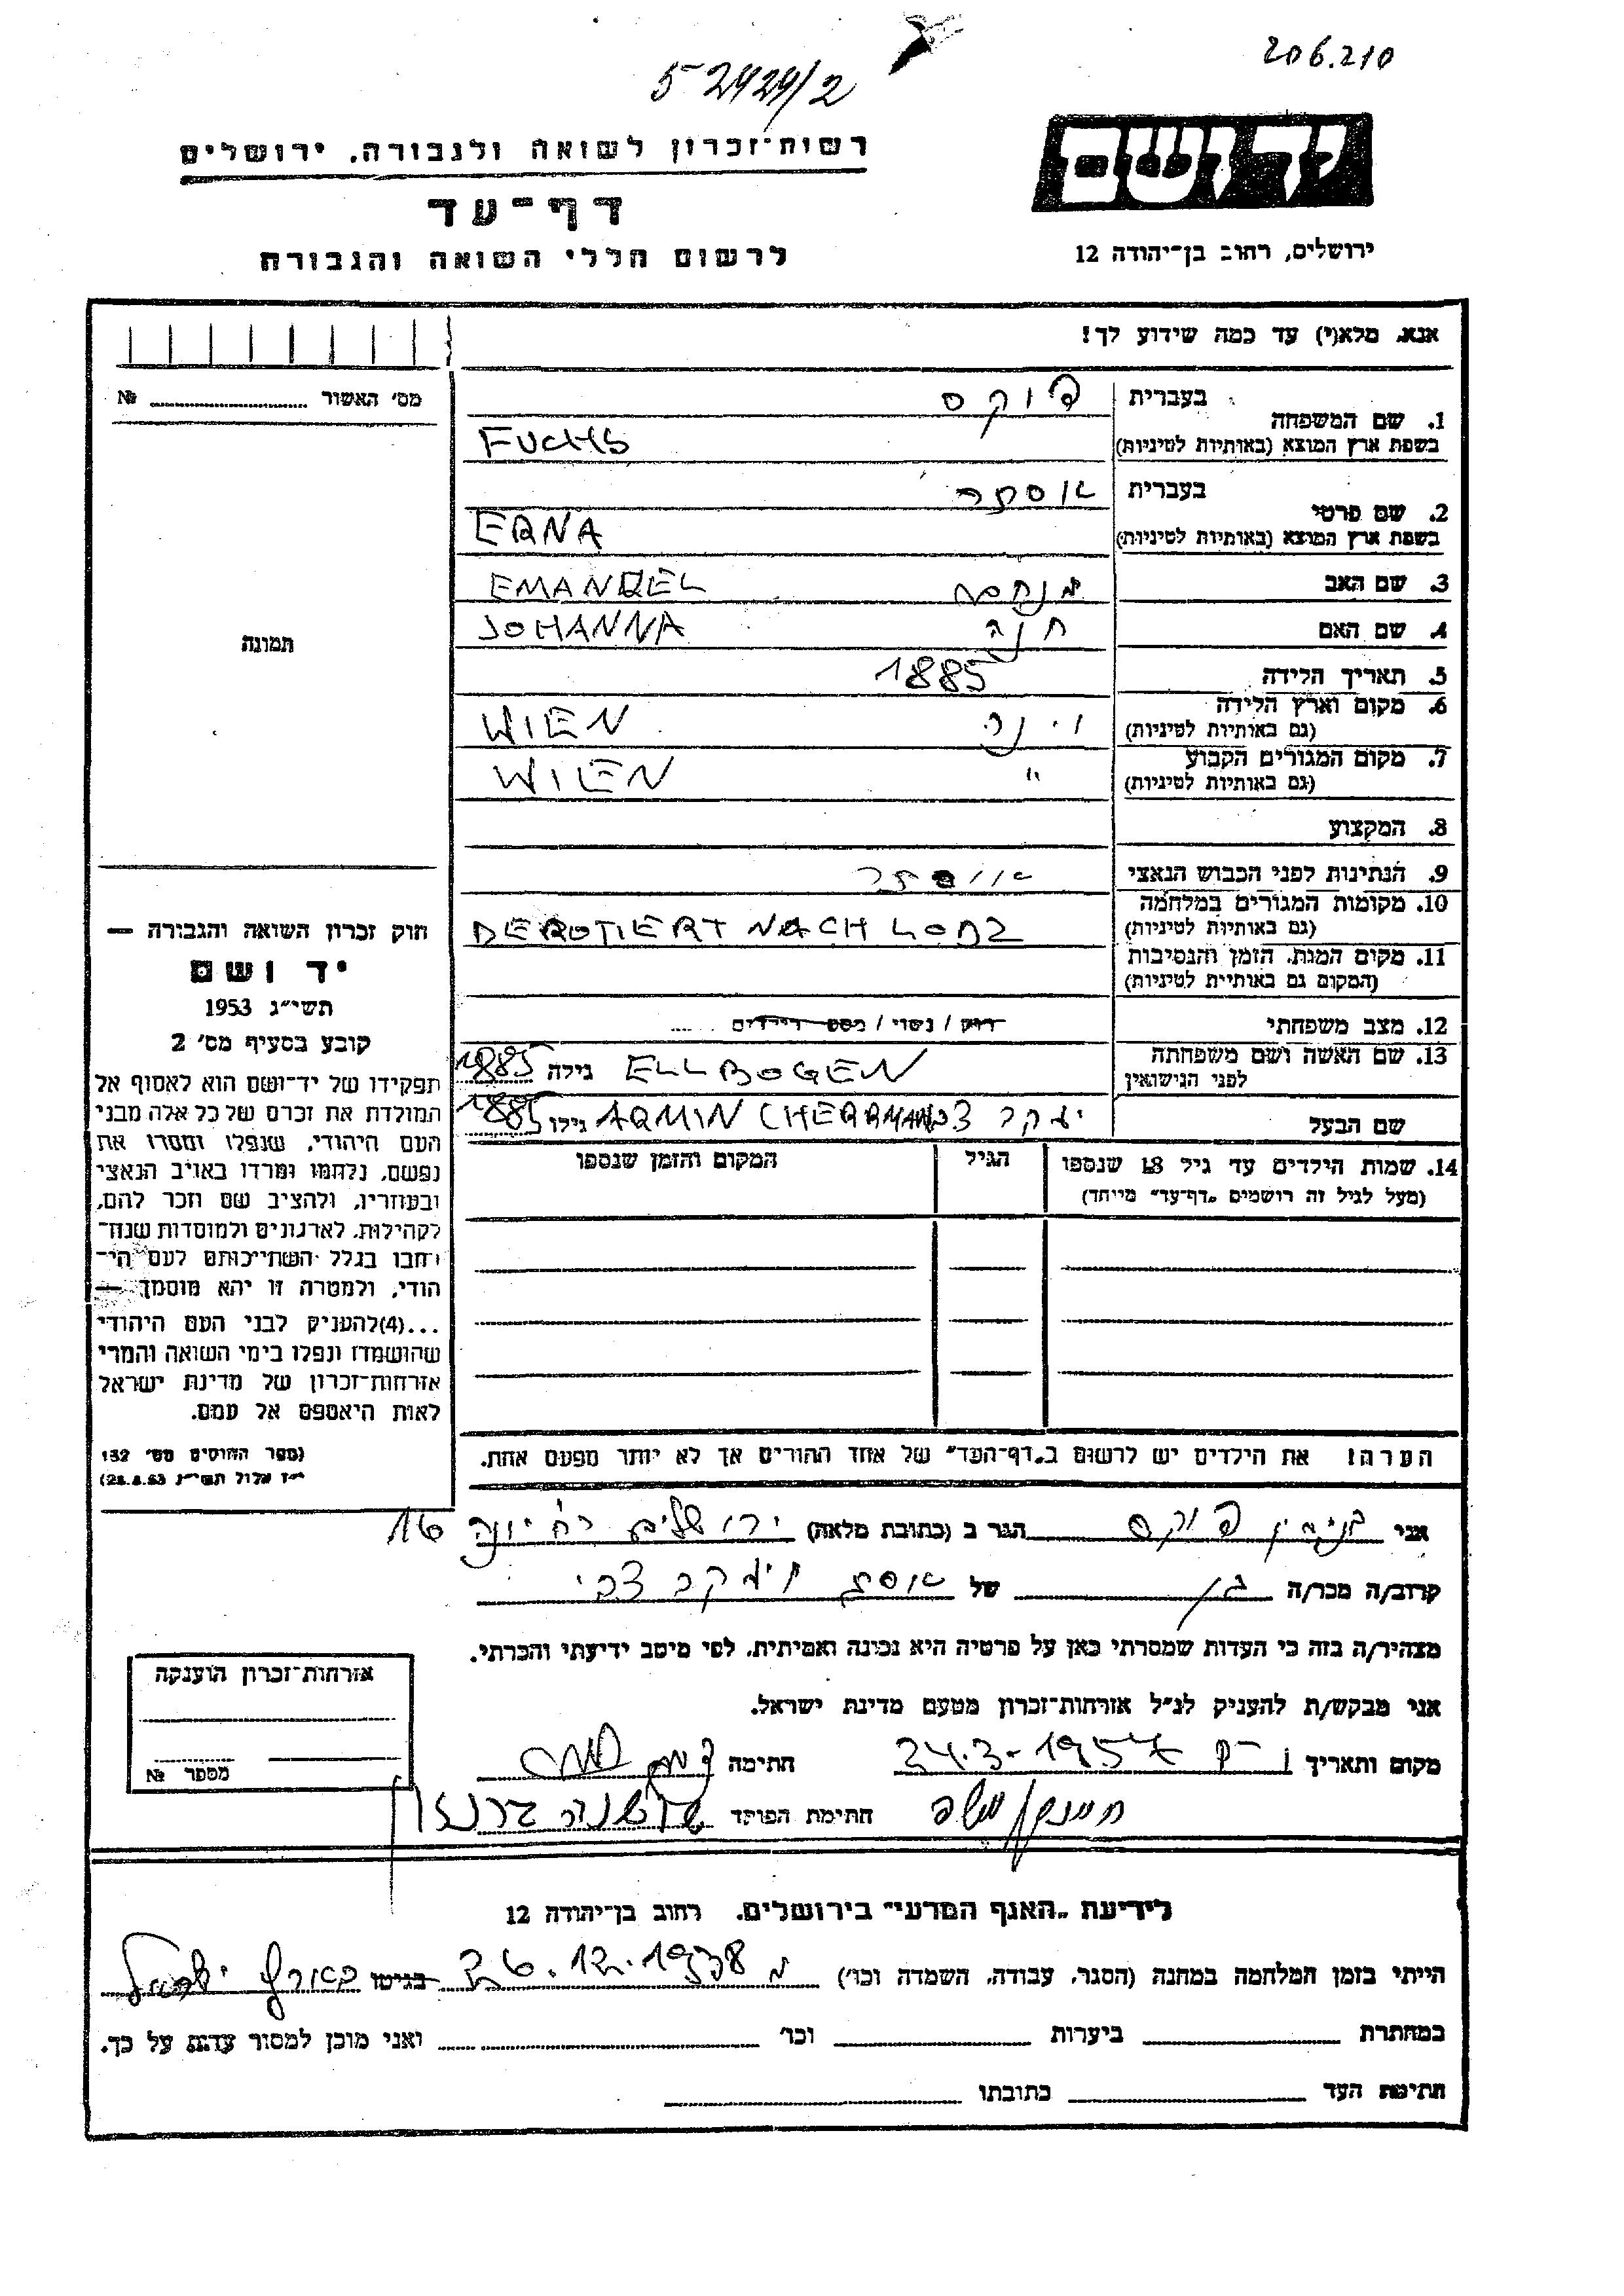 206.210
5 2424/2
יד ושם
ירושלים, רחוב בן־יהודה 12
רשות־זכרון לשואה ולגבורה, ירושלים
דף־עד
לרשום חללי השואה והגבורה
אנא, מלא(י) עד כמה שידוע לך!
מס' האשור № ........
תמונה
בעברית פוקס
1. שם המשפחה
בשפת ארץ המוצא (באותיות לטיניות) FUCHS
בעברית אסתר
2. שם פרטי
בשפת ארץ המוצא (באותיות לטיניות) ERNA
3. שם האב מנחם EMANUEL
4. שם האם חנה JOHANNA
5. תאריך הלידה 1885
6. מקום וארץ הלידה וינה WIEN
(גם באותיות לטיניות)
7. מקום המגורים הקבוע " WIEN
(גם באותיות לטיניות)
8. המקצוע
9. הנתינות לפני הכבוש הנאצי
10. מקומות המגורים במלחמה
(גם באותיות לטיניות) DEPOTIERT NACH LODZ
11. מקום המות, הזמן והנסיבות
(המקום גם באותיות לטיניות)
12. מצב משפחתי רווק / נשוי / מספר הילדים .....
13. שם האשה ושם משפחתה
לפני הנישואין ELLBOGEN גילה 1885
שם הבעל יעקב צבי ARMIN (HERRMANN) גילו 1885
14. שמות הילדים עד גיל 18 שנספו הגיל המקום והזמן שנספו
(מעל לגיל זה רושמים „דף־עד" מיוחד)
הערה! את הילדים יש לרשום ב„דף־העד" של אחד ההורים אך לא יותר מפעם אחת.
חוק זכרון השואה והגבורה —
יד ושם
תשי"ג 1953
קובע בסעיף מס' 2
תפקידו של יד־ושם הוא לאסוף אל
המולדת את זכרם של כל אלה מבני
העם היהודי, שנפלו ומסרו את
נפשם, נלחמו ומרדו באויב הנאצי
ובעוזריו, ולהציב שם וזכר להם,
לקהילות, לארגונים ולמוסדות שנח־
רבו בגלל השתייכותם לעם הי־
הודי, ולמטרה זו יהא מוסמך —
...(4)להעניק לבני העם היהודי
שהושמדו ונפלו בימי השואה והמרי
אזרחות־זכרון של מדינת ישראל
לאות היאספם אל עמם.
(ספר החוקים מס' 132
י"ז אלול תשי"ג 28.8.53)
אני בנימין פוקס הגר ב (כתובת מלאה) ירושלים רח' יונה 16
קרוב/ה מכר/ה בן של אסתר ויעקב צבי
מצהיר/ה בזה כי העדות שמסרתי כאן על פרטיה היא נכונה ואמיתית, לפי מיטב ידיעתי והכרתי.
אני מבקש/ת להעניק לנ"ל אזרחות־זכרון מטעם מדינת ישראל.
מקום ותאריך 24.3.1957 חתימה
חתימת הפוקד
אזרחות־זכרון הוענקה
מספר №
לידיעת „האגף המדעי" בירושלים, רחוב בן־יהודה 12
הייתי בזמן המלחמה במחנה (הסגר, עבודה, השמדה וכו') מ 26.12.1938 בגיטו בארץ ישראל
במחתרת ביערות וכו' ואני מוכן למסור עדות על כך.
חתימת העד כתובתו